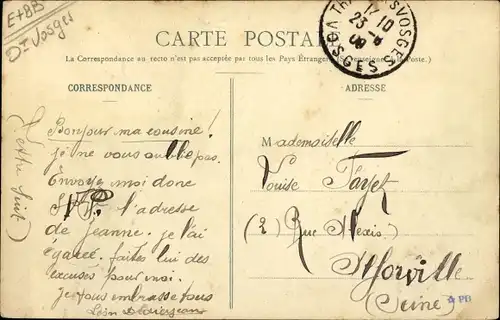 E+8B
Dt Vosges
CARTE POSTALE
(La Correspondance au recto n'est pas acceptée par tous les Pays Étrangers. (Se renseigner à la Poste.)
CORRESPONDANCE
ADRESSE
VOSGES
17 10
23 -8
09
Bonjour ma cousine!
je ne vous oublie pas.
Envoyez moi donc
SVP l'adresse
de Jeanne. je l'ai
égaré. faites lui des
excuses pour moi.
Je vous embrasse tous
Léon
Mademoiselle
Louise Fayet
(2) Rue Alexis
Ithorville
(Seine)
(Verte suit)
PB